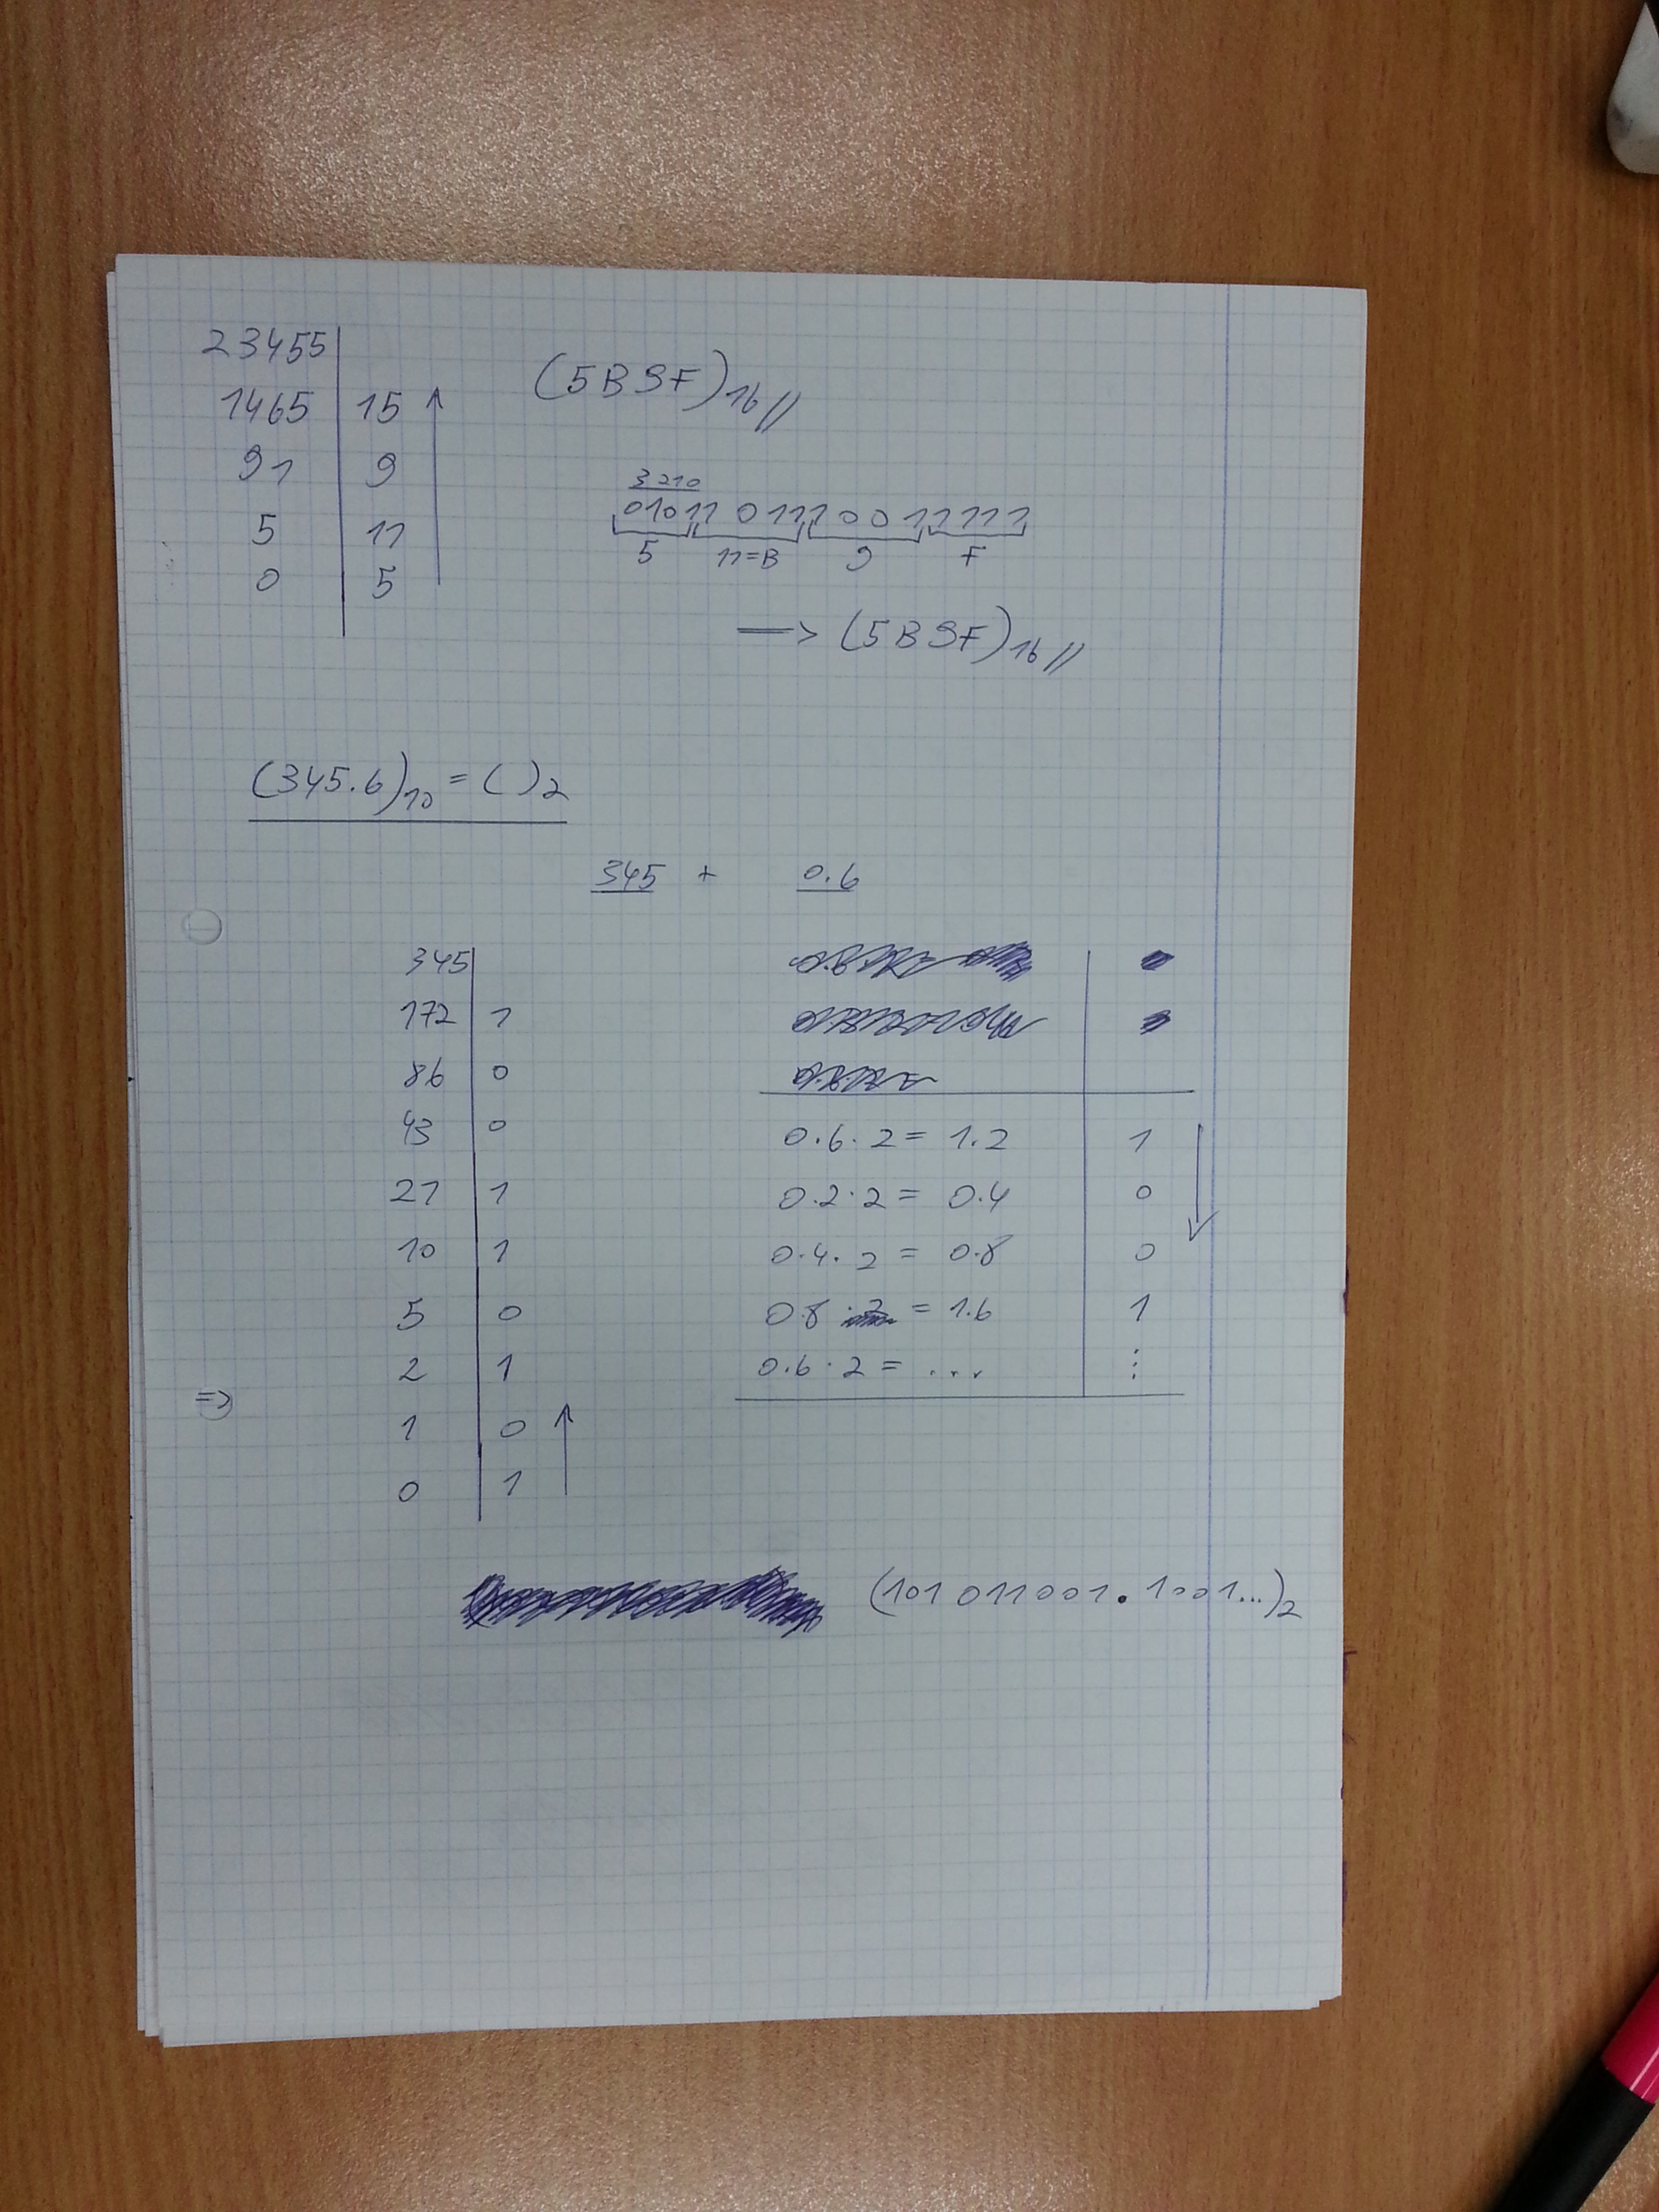 23455
1465 | 15
91 | 9
5 | 11
0 | 5
(5B9F)16 //
3 210
0101 1011 1001 1111
5 11=B 9 F
=> (5B9F)16 //
(345.6)10 = ( )2
345 + 0.6
345
172 | 1
86 | 0
43 | 0
21 | 1
10 | 1
5 | 0
2 | 1
=>
1 | 0
0 | 1
0.6 · 2 = 1.2 | 1
0.2 · 2 = 0.4 | 0
0.4 · 2 = 0.8 | 0
0.8 · 2 = 1.6 | 1
0.6 · 2 = ... | ⋮
(101 011001.1001...)2